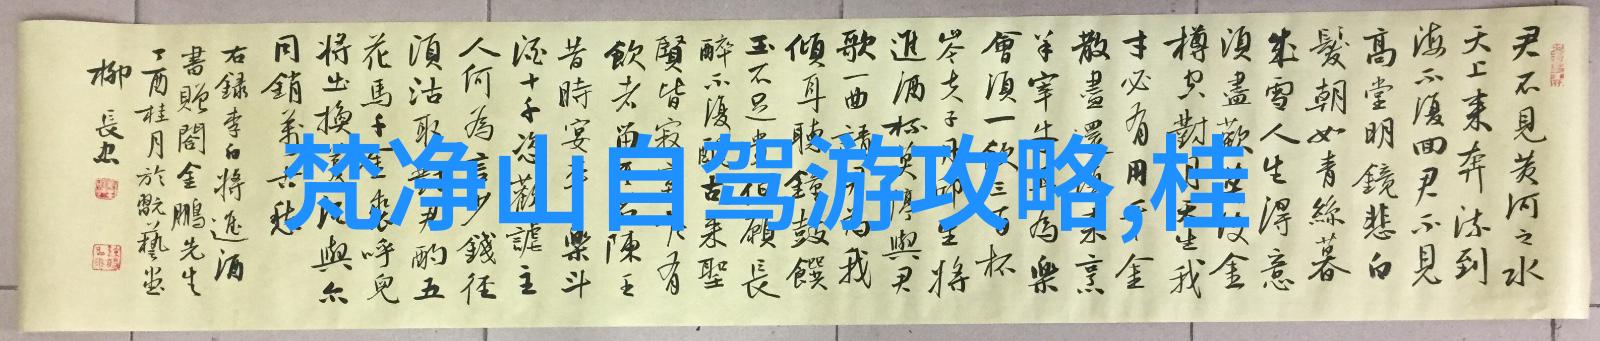 君不见黄河之水
天上来奔流到
海不復回君不見
高堂明鏡悲白
髮朝如青絲暮
成雪人生得意
須盡歡莫使金
樽空對月天生我
才必有用千金
散盡還復來烹
羊宰牛且為樂
會須一飲三百杯
岑夫子丹邱生將
進酒杯莫停與君
歌一曲請君為我
傾耳聽鐘鼓饌
玉不足貴但願長
醉不復醒古來聖
賢皆寂寞惟有
飲者留其名陳王
昔時宴平樂斗
酒十千恣歡謔主
人何為言少錢徑
須沽取對君酌五
花馬千金裘呼兒
將出換美酒與爾
同銷萬古愁
右録李白將進酒
書贈閤金鵬先生
丁酉桂月於翫藝堂
柳長忠
梵净山自驾游攻略,桂